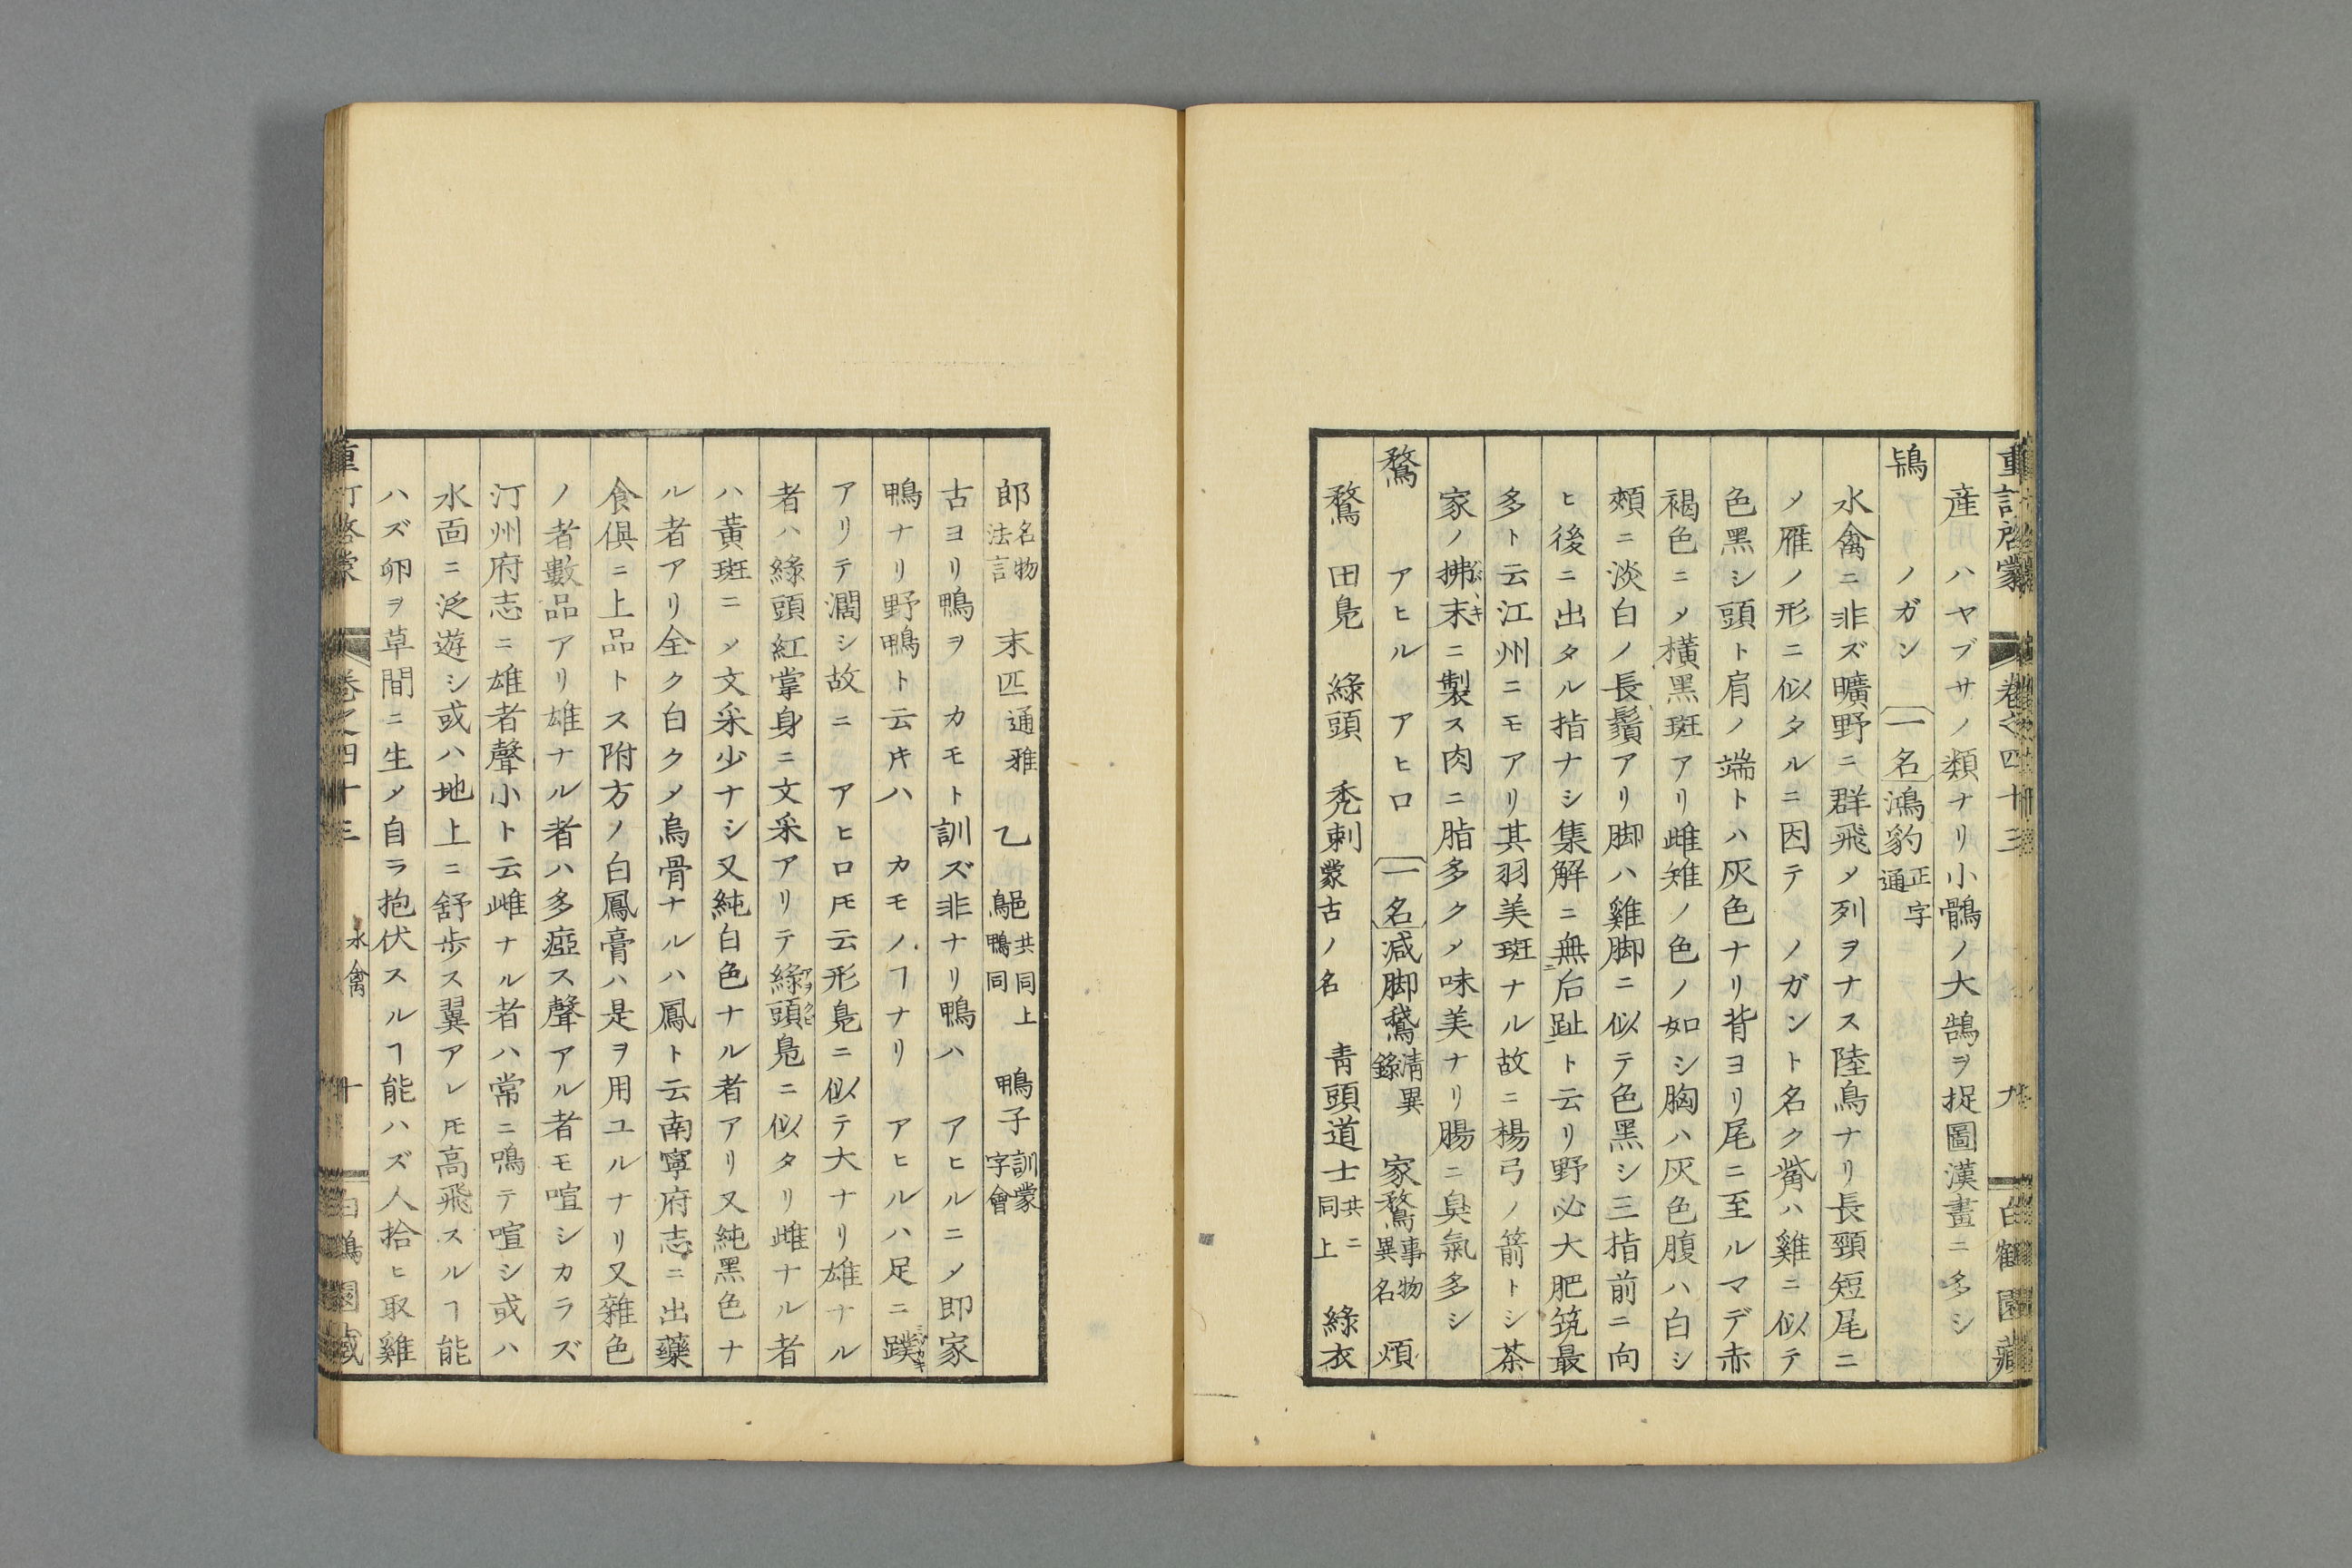 重訂啓蒙 卷之四十三 九 白鶴園藏
産ハヤブサノ類ナリ小鶻ノ大鵠ヲ捉圖漢畫ニ多シ
鴇 ノガン 一名鴻豹正字通
水禽ニ非ズ曠野ニ群飛メ列ヲナス陸鳥ナリ長頸短尾ニ
メ雁ノ形ニ似タルニ因テ ノガント名ク觜ハ雞ニ似テ
色黑シ頭ト肩ノ端トハ灰色ナリ背ヨリ尾ニ至ルマデ赤
褐色ニメ橫黑斑アリ雌雉ノ色ノ如シ胸ハ灰色腹ハ白シ
頰ニ淡白ノ長鬚アリ脚ハ雞脚ニ似テ色黑シ三指前ニ向
ヒ後ニ出タル指ナシ集解ニ無后趾ト云リ野必大肥筑最
多ト云江州ニモアリ其羽美斑ナル故ニ楊弓ノ箭トシ茶
家ノ拂末ニ製ス肉ニ脂多クメ味美ナリ腸ニ臭氣多シ
鶩 アヒル アヒロ 一名減脚鵞清異錄 家鶩事物異名 煩
鶩 田鳬 綠頭 禿剌蒙古ノ名 靑頭道士共ニ同上 綠衣
郎名物法言 末匹通雅 乙 鳦共同上鴨同 鴨子訓蒙字會
古ヨリ鴨ヲ カモト訓ズ非ナリ鴨ハ アヒルニメ即家
鴨ナリ野鴨ト云片ハ カモノヿナリ アヒルハ足ニ蹼
アリテ濶シ故ニ アヒロ𪜈云形鳬ニ似テ大ナリ雄ナル
者ハ綠頭紅掌身ニ文采アリテ綠頭鳬ニ似タリ雌ナル者
ハ黃斑ニメ文采少ナシ又純白色ナル者アリ又純黑色ナ
ル者アリ全ク白クメ烏骨ナルハ鳳ト云南寧府志ニ出藥
食倶ニ上品トス附方ノ白鳳膏ハ是ヲ用ユルナリ又雜色
ノ者數品アリ雄ナル者ハ多瘂ス聲アル者モ喧シカラズ
汀州府志ニ雄者聲小ト云雌ナル者ハ常ニ鳴テ喧シ或ハ
水面ニ泛遊シ或ハ地上ニ舒歩ス翼アレ𪜈高飛スルヿ能
ハズ卵ヲ草間ニ生メ自ラ抱伏スルヿ能ハズ人拾ヒ取雞
重訂啓蒙 卷之四十三 水禽 十 白鶴園藏